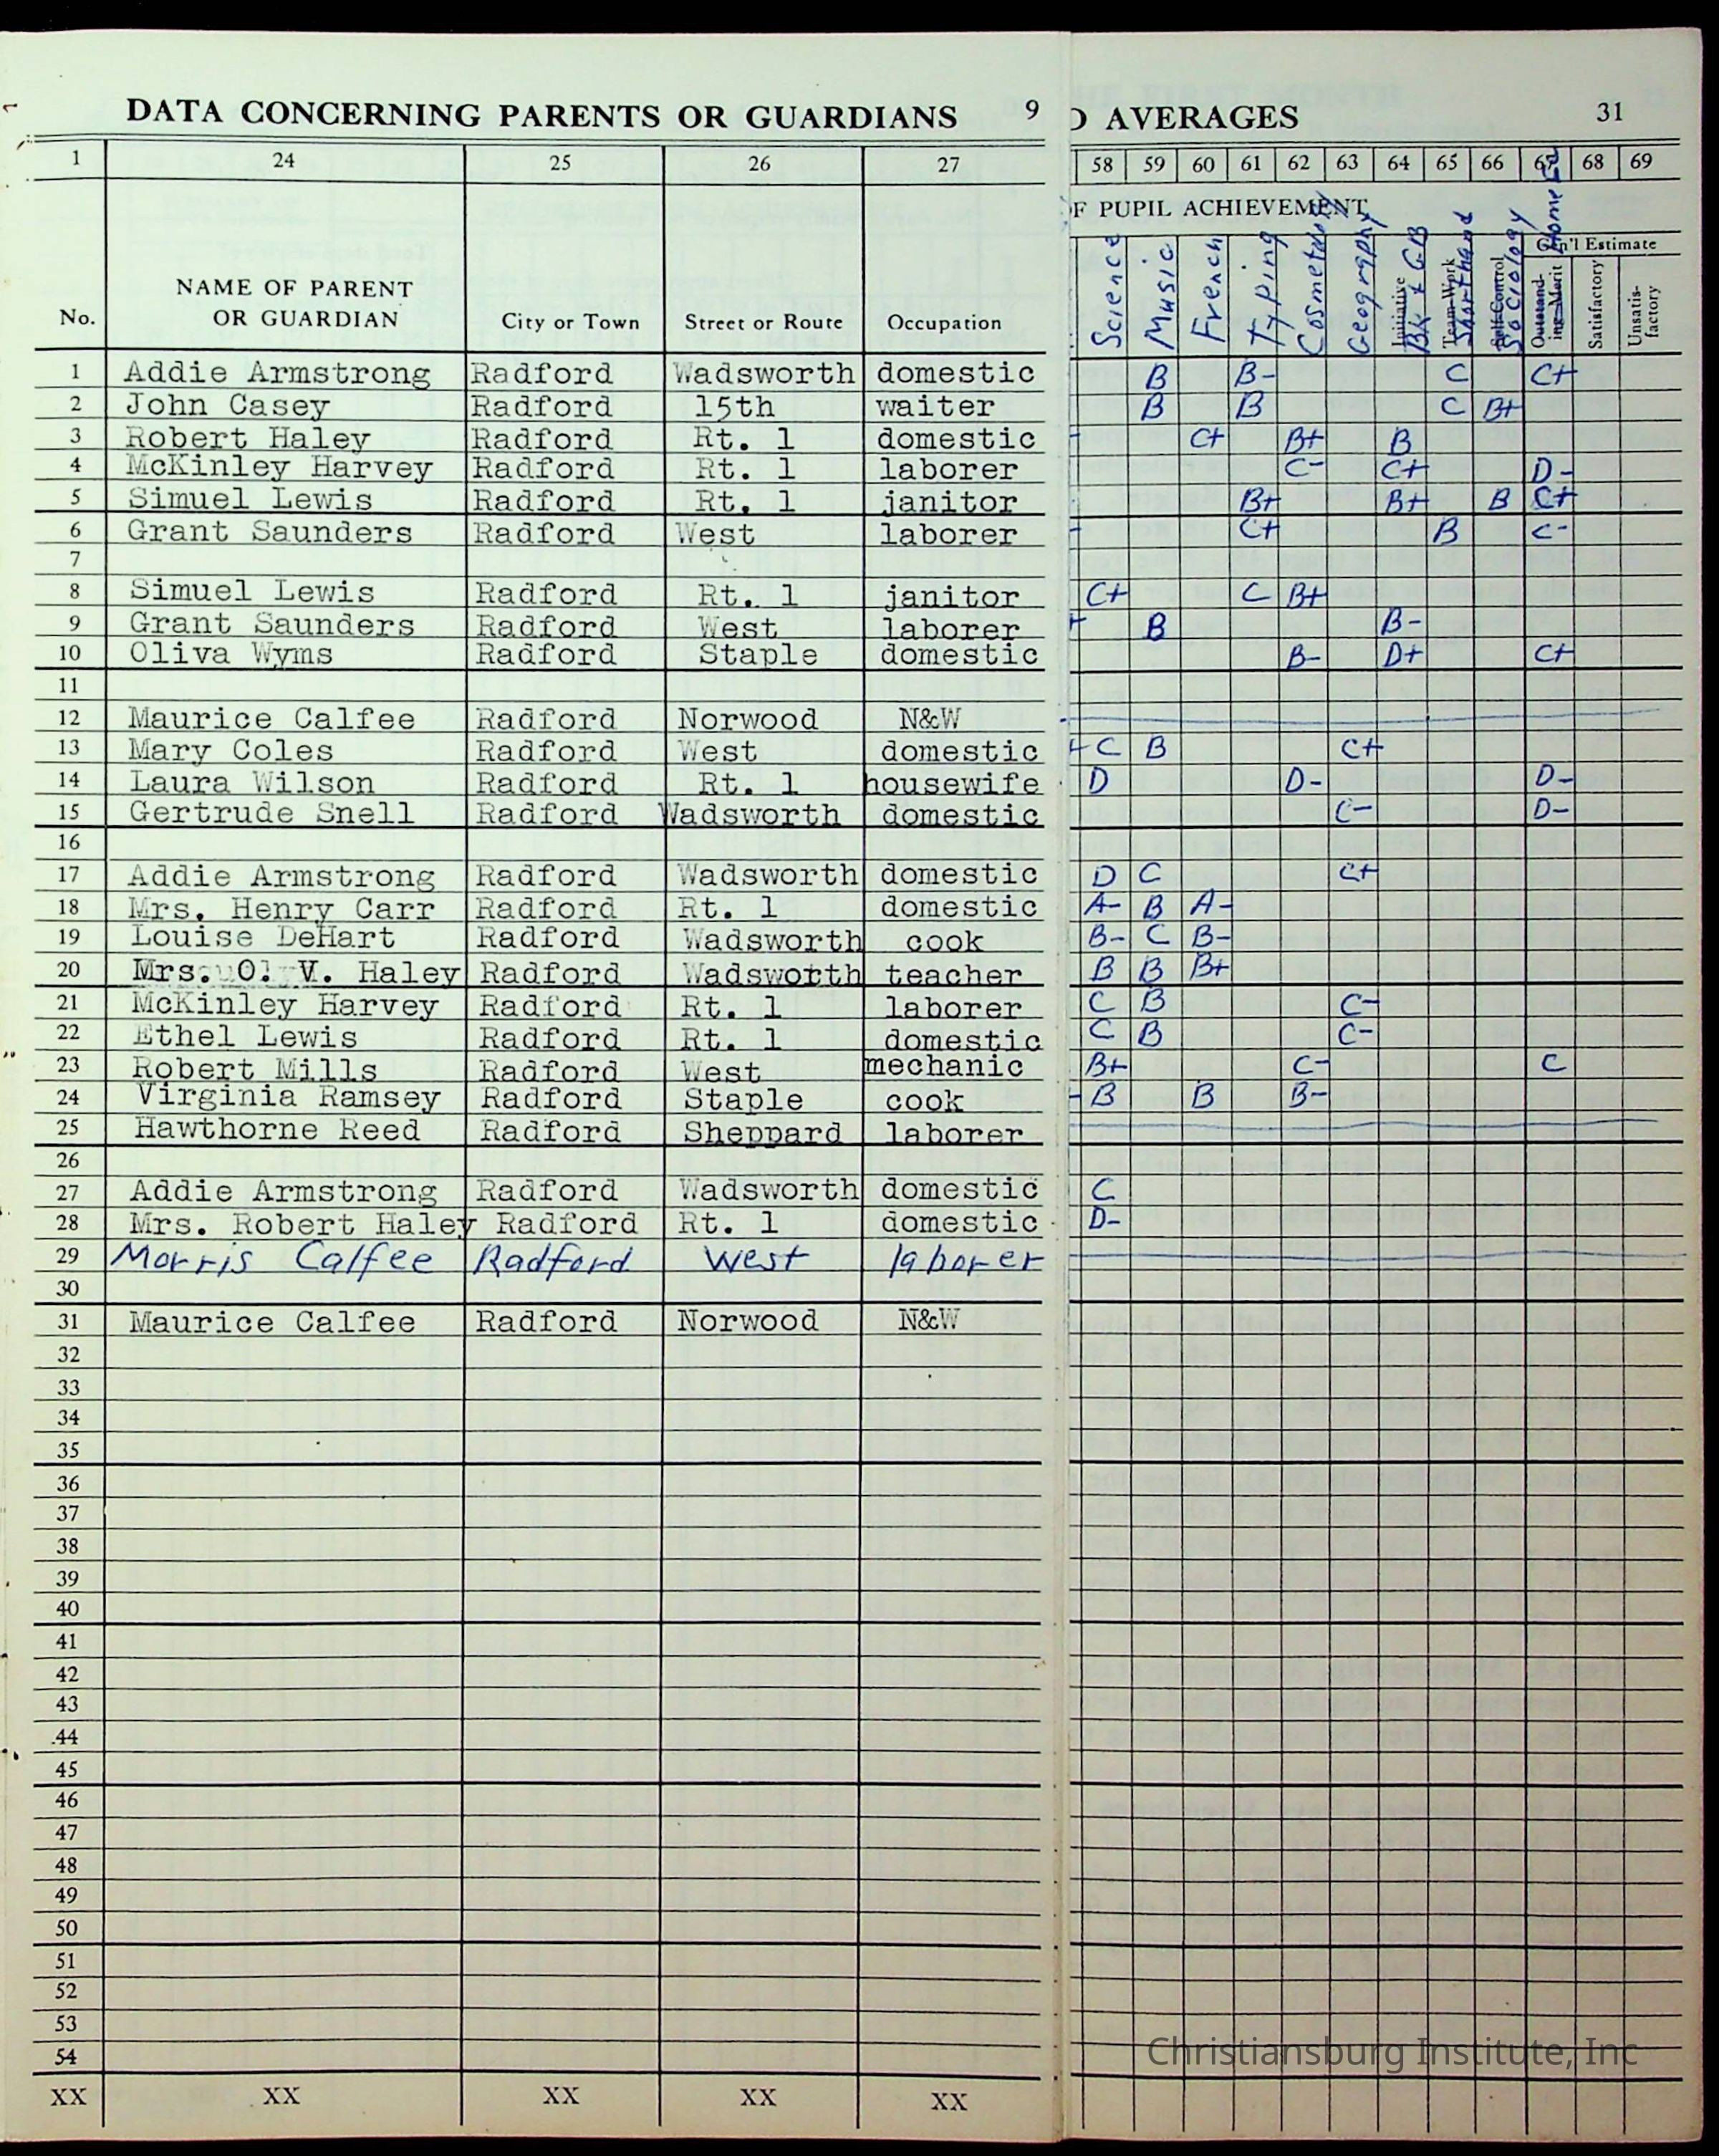 DATA CONCERNING PARENTS OR GUARDIANS 9
1 24 25 26 27
No. NAME OF PARENT OR GUARDIAN City or Town Street or Route Occupation
1 Addie Armstrong Radford Wadsworth domestic
2 John Casey Radford 15th waiter
3 Robert Haley Radford Rt. 1 domestic
4 McKinley Harvey Radford Rt. 1 laborer
5 Simuel Lewis Radford Rt. 1 janitor
6 Grant Saunders Radford West laborer
7
8 Simuel Lewis Radford Rt. 1 janitor
9 Grant Saunders Radford West laborer
10 Oliva Wyms Radford Staple domestic
11
12 Maurice Calfee Radford Norwood N&W
13 Mary Coles Radford West domestic
14 Laura Wilson Radford Rt. 1 housewife
15 Gertrude Snell Radford Wadsworth domestic
16
17 Addie Armstrong Radford Wadsworth domestic
18 Mrs. Henry Carr Radford Rt. 1 domestic
19 Louise DeHart Radford Wadsworth cook
20 Mrs. O. V. Haley Radford Wadsworth teacher
21 McKinley Harvey Radford Rt. 1 laborer
22 Ethel Lewis Radford Rt. 1 domestic
23 Robert Mills Radford West mechanic
24 Virginia Ramsey Radford Staple cook
25 Hawthorne Reed Radford Sheppard laborer
26
27 Addie Armstrong Radford Wadsworth domestic
28 Mrs. Robert Haley Radford Rt. 1 domestic
29 Morris Calfee Radford West laborer
30
31 Maurice Calfee Radford Norwood N&W
32
33
34
35
36
37
38
39
40
41
42
43
44
45
46
47
48
49
50
51
52
53
54
XX XX XX XX XX
D AVERAGES 31
58 59 60 61 62 63 64 65 66 67 68 69
OF PUPIL ACHIEVEMENT
Gen'l Estimate
Science Music French Typing Cosmetology Geography Initiative Bk & GB Team-Work Shorthand Self-Control Sociology Outstand-ing Merit Home Ec Satisfactory Unsatis-factory
B B- C C+
B B C B+
C+ B+ B
C- C+ D-
B+ B+ B C+
C+ B C-
C+ C B+
B B-
B- D+ C+
C B C+
D D- D-
C- D-
D C C+
A- B A-
B- C B-
B B B+
C B C-
C B C-
B+ C- C
B B B-
C
D-
Christiansburg Institute, Inc